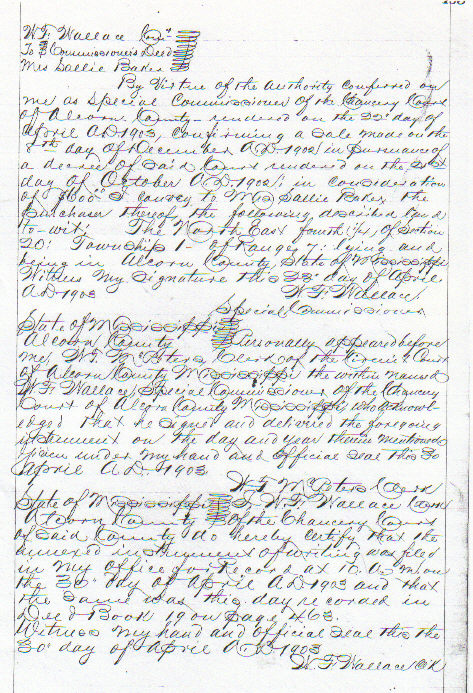 W. F. Wallace Com'r
To } Commissioners Deed
Mrs Sallie Baker
By Virtue of the Authority conferred on
me as Special Commissioner of the Chancery Court
of Alcorn County rendered on the 22' day of
April A.D. 1903, confirming a Sale made on the
day of December A.D. 1902 in pursuance of
a decree of Said Court rendered on the
day of October A.D. 1902; in consideration
of I convey to Mrs Sallie Baker the
purchaser thereof the following described land
to-wit; The North East fourth 1/4, of Section
20' Township 1- of Range, 7; lying and
being in Alcorn County, State of Mississippi
Witness my Signature this day of April
A.D. 1903 W. F. Wallace
Special Commissioner
State of Mississippi
Alcorn County Personally appeared before
me, W. T. McPeters Clerk of the Circuit Court
of Alcorn County Mississippi the within named
W. F. Wallace, Special Commissioner of the Chancery
Court of Alcorn County Mississippi who acknowl-
edged that he signed and delivered the foregoing
instrument on the day and year therein mentioned
Given under my hand and Official Seal this 30
April A.D. 1903
W. T. McPeters Clerk
State of Mississippi I W. F. Wallace Clerk
Alcorn County Of the Chancery Court
of Said County do hereby certify that the
annexed instrument of writing was filed
in my Office for Record at 10. A.M. on
the 30' day of April A.D. 1903 and that
the same was this day recorded in
Deed Book 19 on page 463.
Witness my hand and Official Seal this the
30' day of April A.D. 1903
W. F. Wallace Clk